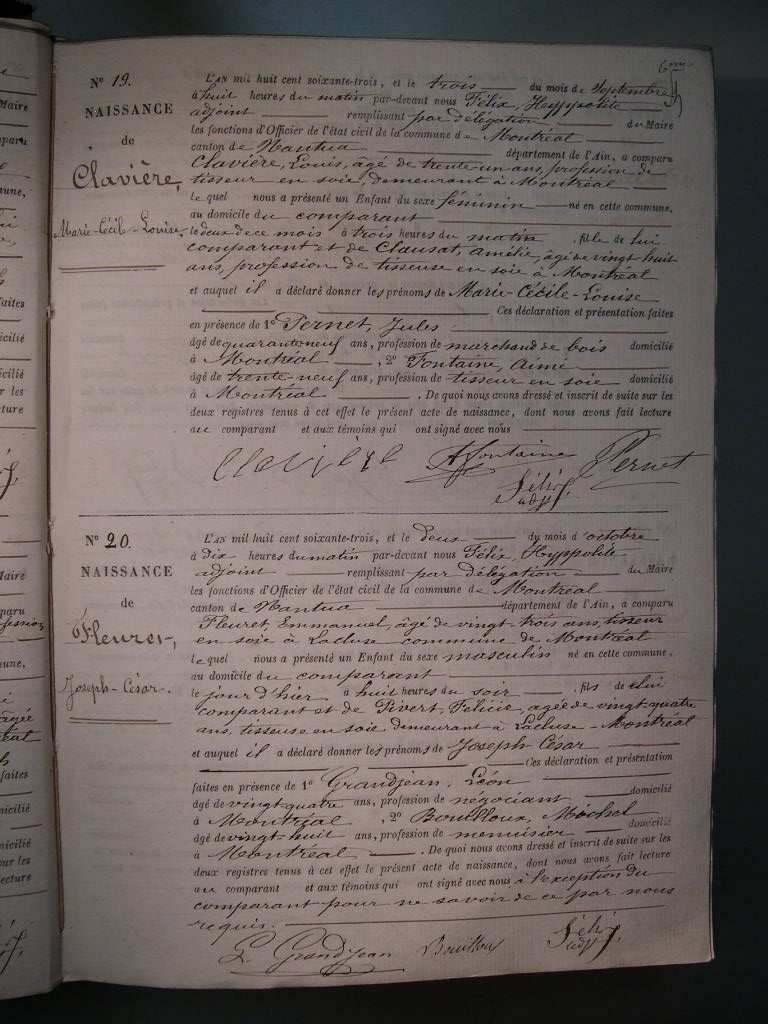 6me
N° 19.
NAISSANCE
de
Clavière,
Marie-Cécil-Louise
L'AN mil huit cent soixante-trois, et le trois du mois de Septembre
à huit heures du matin par-devant nous Félix, Hyppolite
adjoint remplissant par délégation du Maire
les fonctions d'Officier de l'état civil de la commune de Montréal
canton de Nantua département de l'Ain, a comparu
Clavière, Louis, âgé de trente-un ans, profession de
tisseur en soie, demeurant à Montréal
le quel nous a présenté un Enfant du sexe féminin né en cette commune,
au domicile du comparant
le deux de ce mois à trois heures du matin, fille de lui
comparant et de Clausat, Amélie, âgée de vingt-huit
ans, profession de tisseuse en soie à Montréal
et auquel il a déclaré donner les prénoms de Marie-Cécile-Louise
Ces déclaration et présentation faites
en présence de 1° Pernet, Jules
âgé de quarante neuf ans, profession de marchand de bois domicilié
à Montréal, 2° Fontaine, Aimé
âgé de trente-neuf ans, profession de tisseur en soie domicilié
à Montréal. De quoi nous avons dressé et inscrit de suite sur les
deux registres tenus à cet effet le présent acte de naissance, dont nous avons fait lecture
au comparant et aux témoins qui ont signé avec nous
Clavière Afontaine Pernet
Félix
adjt
N° 20.
NAISSANCE
de
Fleuret,
Joseph-César.
L'AN mil huit cent soixante-trois, et le deux du mois d'octobre
à dix heures du matin par-devant nous Félix, Hyppolite
adjoint remplissant par délégation du Maire
les fonctions d'Officier de l'état civil de la commune de Montréal
canton de Nantua département de l'Ain, a comparu
Fleuret, Emmanuel, âgé de vingt-trois ans, tisseur
en soie à Lacluse commune de Montréal
le quel nous a présenté un Enfant du sexe masculin né en cette commune,
au domicile du comparant
le jour d'hier à huit heures du soir, fils de lui
comparant et de Rivert, Félicie, agée de vingt-quatre
ans, tisseuse en soie demeurant à Lacluse-Montréal
et auquel il a déclaré donner les prénoms de Joseph César
Ces déclaration et présentation
faites en présence de 1° Grandjean, Léon
âgé de vingt-quatre ans, profession de négociant domicilié
à Montréal, 2° Bouilloux, Michel
âgé de vingt-huit ans, profession de menuisier domicilié
à Montréal. De quoi nous avons dressé et inscrit de suite sur les
deux registres tenus à cet effet le présent acte de naissance, dont nous avons fait lecture
au comparant et aux témoins qui ont signé avec nous à l'exception du
comparant pour ne savoir de ce par nous
requis.
L Grandjean Bouilloux Félix
adjt